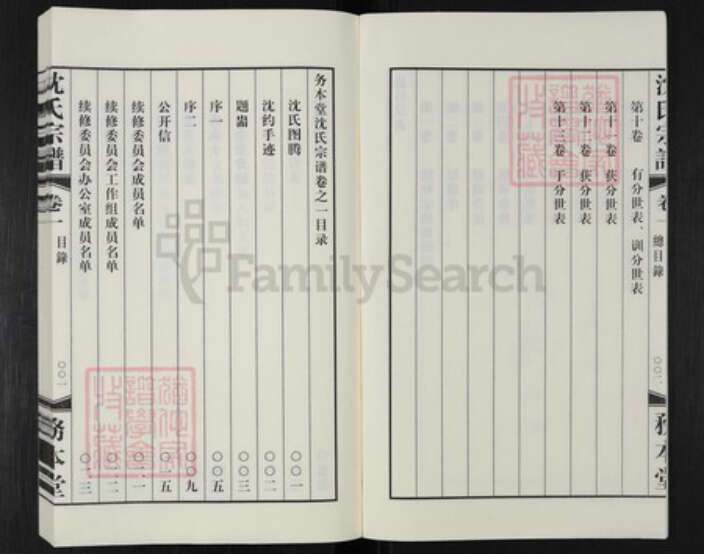 沈氏宗譜 卷一 總目錄 〇〇二 務本堂
第十卷 有分世表、训分世表
第十一卷 获分世表
第十二卷 获分世表
第十三卷 于分世表
务本堂沈氏宗谱卷之一目录
沈氏图腾 〇〇一
沈约手迹 〇〇二
题 〇〇三
序一 〇〇五
序二 〇〇九
公开信 〇一五
续修委员会成员名单 〇二一
续修委员会工作组成员名单 〇二二
续修委员会办公室成员名单 〇二三
沈氏宗譜 卷一 目錄 〇〇一 務本堂
FamilySearch